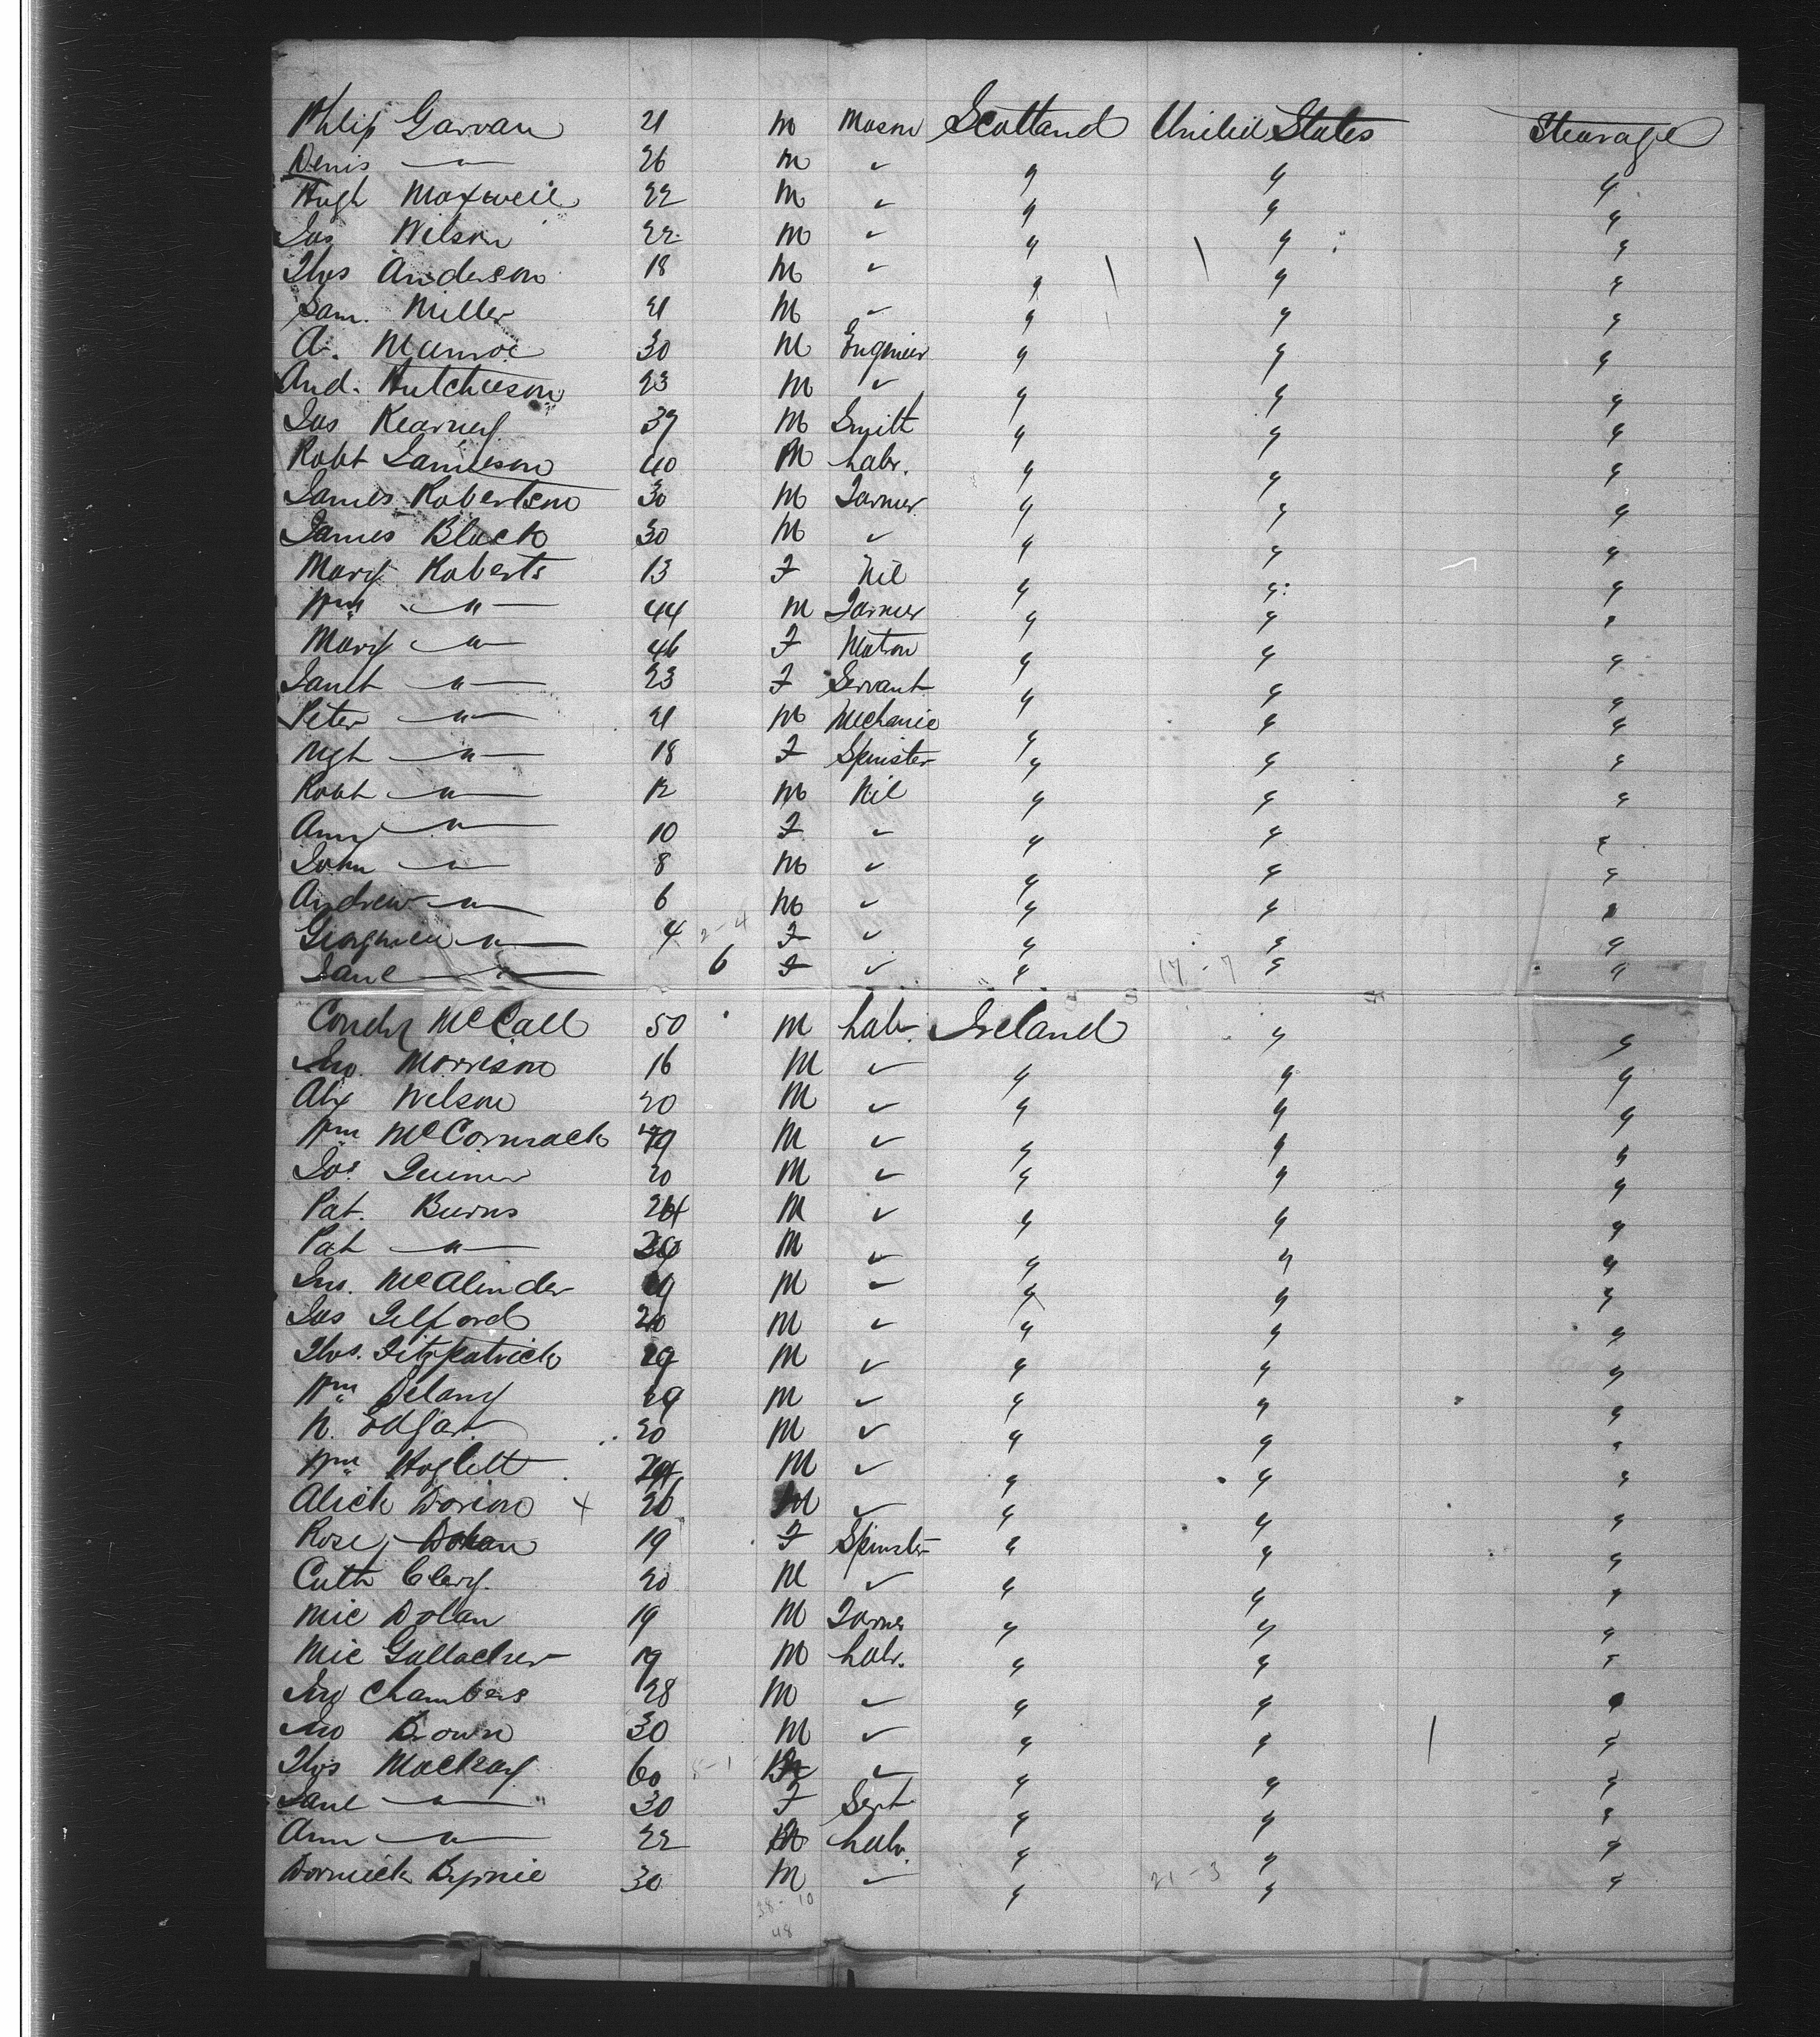 Philip Garvan 21 M Mason Scotland United States Steerage
Denis —"— 26 M ✓ " " "
Hugh Maxwell 22 M ✓ " " "
Jas Wilson 22 M ✓ " " "
Thos Anderson 18 M ✓ " " "
Sam. Miller 21 M ✓ " " "
A. Munroe 30 M Engineer " " "
And. Hutcheson 23 M ✓ " " "
Jas Kearney 39 M Smith " " "
Robt Jamieson 40 M Labr. " " "
James Robertson 30 M Farmer " " "
James Black 30 M ✓ " " "
Mary Roberts 13 F Nil " " "
Wm —"— 44 M Farmer " " "
Mary —"— 46 F Matron " " "
Janet —"— 23 F Servant " " "
Peter —"— 21 M Mechanic " " "
Mgt —"— 18 F Spinster " " "
Robt —"— 12 M Nil " " "
Ann —"— 10 F ✓ " " "
John —"— 8 M ✓ " " "
Andrew —"— 6 M ✓ " " "
—"— 4 2-4 F ✓ " " "
Jane —"— 6 F ✓ " 17-7 " "
McCall 50 M Labr. Ireland " "
Jno. Morrison 16 M ✓ " " "
Alex Wilson 20 M ✓ " " "
Wm McCormack 19 M ✓ " " "
Jos. Quinn 20 M ✓ " " "
Pat. Burns 24 M ✓ " " "
Pat —"— M ✓ " " "
Jno. McAlinder 19 M ✓ " " "
Jas Telford 20 M ✓ " " "
Thos. Fitzpatrick 29 M ✓ " " "
Wm Delany 29 M ✓ " " "
N. Edgar 20 M ✓ " " "
Wm Hoglett M ✓ " " "
Alick Dorion x 26 M ✓ " " "
Rose Dolan 19 F Spinster " " "
Cuth Clery 20 M ✓ " " "
Mic Dolan 19 M Farmer " " "
Mic Gallacher 19 M Labr. " " "
Jno Chambers 28 M ✓ " " "
Jno Brown 30 M ✓ " " "
Thos Mackay 60 5-1 ✓ " " "
Jane —"— 30 F Sert " " "
Ann —"— 22 Labr. " " "
Dormick Byrnie 30 M ✓ " 21-3 " "
38-10
48